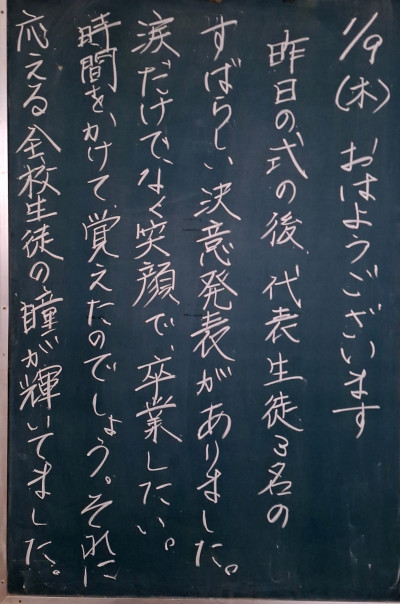 1/9(木) おはようございます
昨日の式の後、代表生徒3名の
すばらしい決意発表がありました。
涙だけでなく笑顔で、卒業したい。
時間をかけて、覚えたのでしょう。それに
応える全校生徒の瞳が輝いてました。